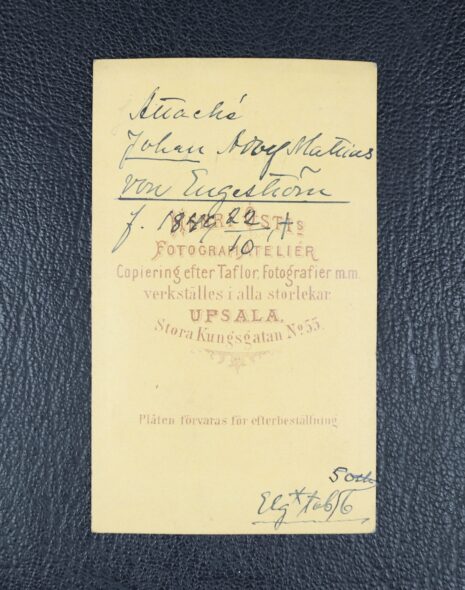 Attaché
Johan Adolf Mathias
von Engeström
f. 22/10, +
FOTOGRAFIATELIÉR
Copiering efter Taflor, Fotografier m.m.
verkställes i alla storlekar.
UPSALA,
Stora Kungsgatan No 55.
Plåten förvaras för efterbeställning
5
Elg* tab